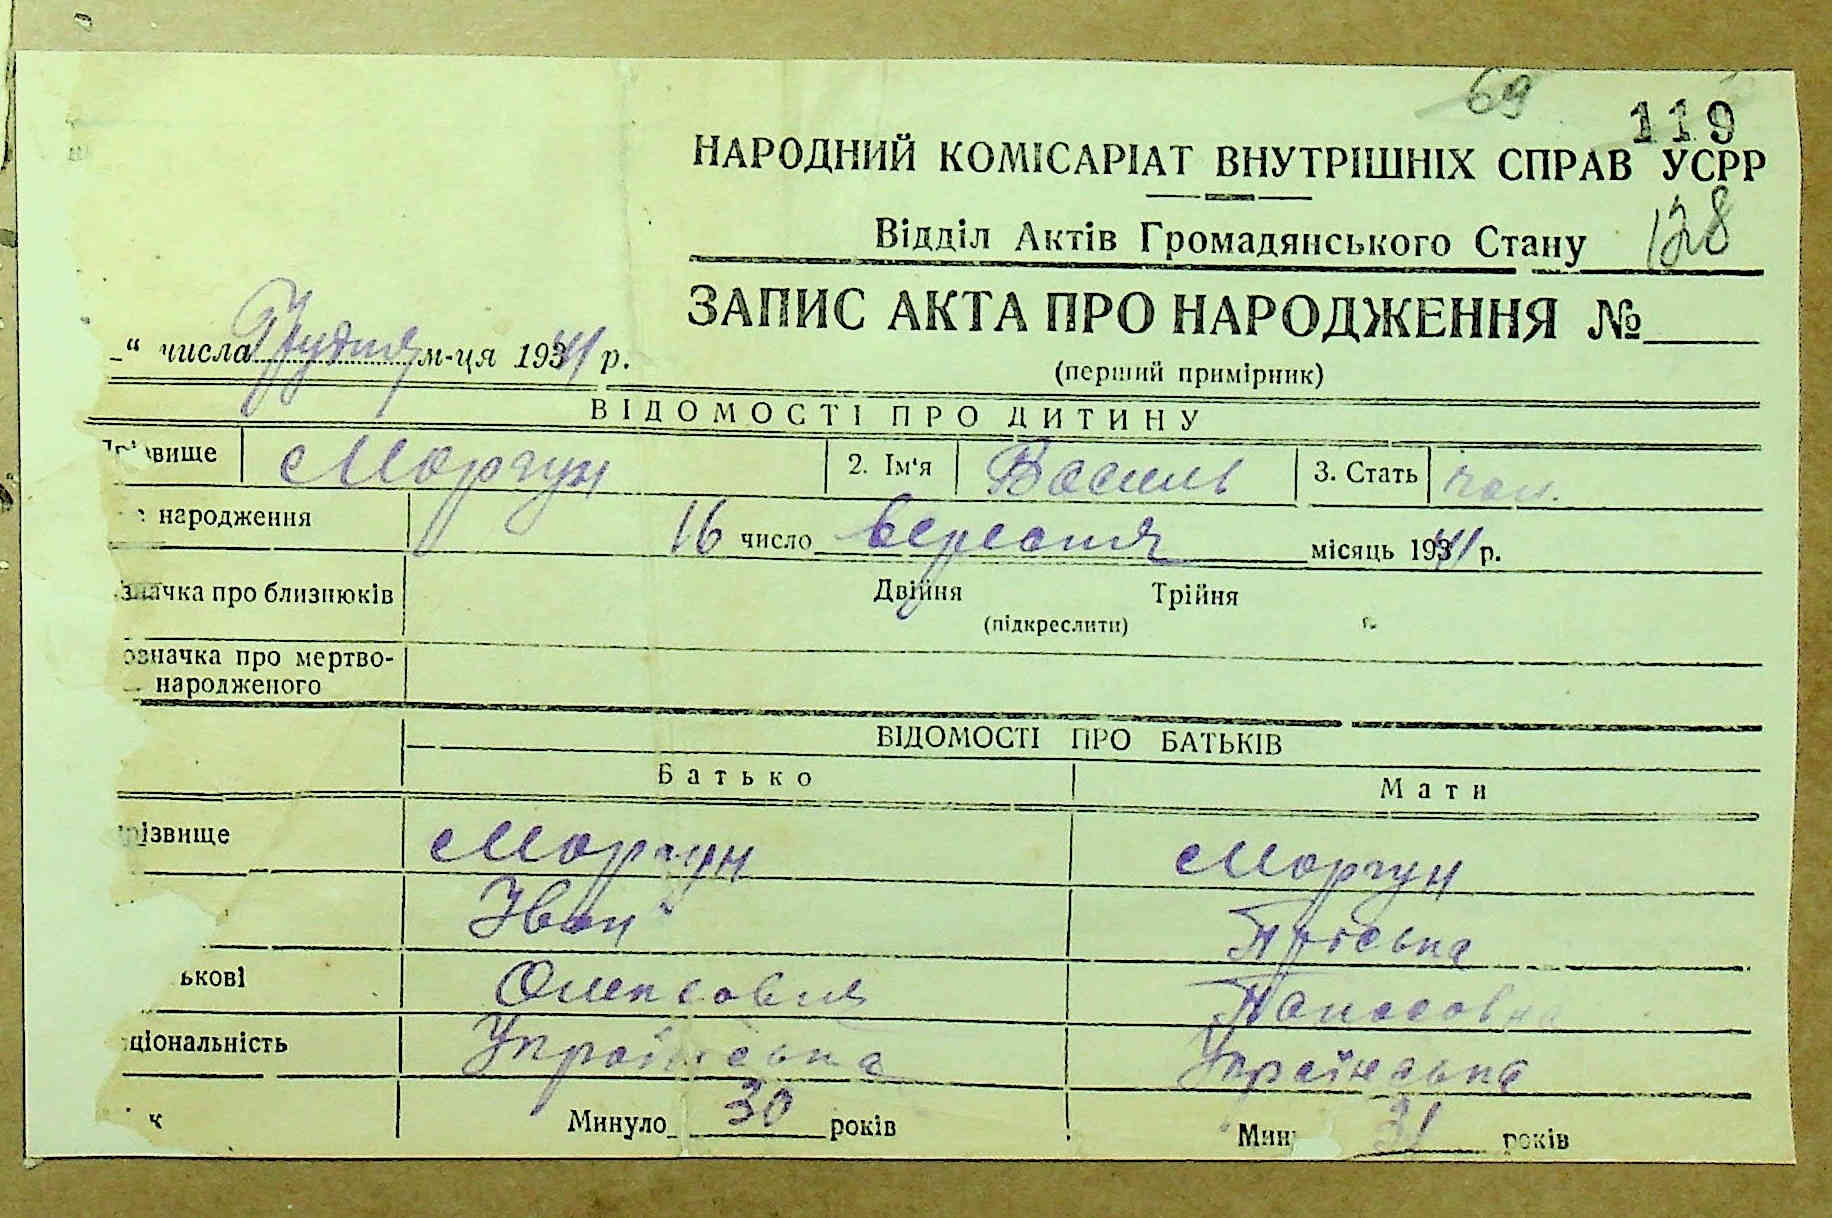 69
119
НАРОДНИЙ КОМІСАРІАТ ВНУТРІШНІХ СПРАВ УСРР
Відділ Актів Громадянського Стану 128
ЗАПИС АКТА ПРО НАРОДЖЕННЯ №
“ числа Грудня м-ця 1941 р.
(перший примірник)
ВІДОМОСТІ ПРО ДИТИНУ
вище Моргун 2. Ім'я Василь 3. Стать чол.
народження 16 число вересня місяць 1941 р.
значка про близнюків Двійня Трійня
(підкреслити)
означка про мертво-
народженого
ВІДОМОСТІ ПРО БАТЬКІВ
Батько Мати
різвище Моргун Моргун
Іван Пріська
ькові Олексовия Панасовна
ціональність Українська Українська
к Минуло 30 років Мин 31 років